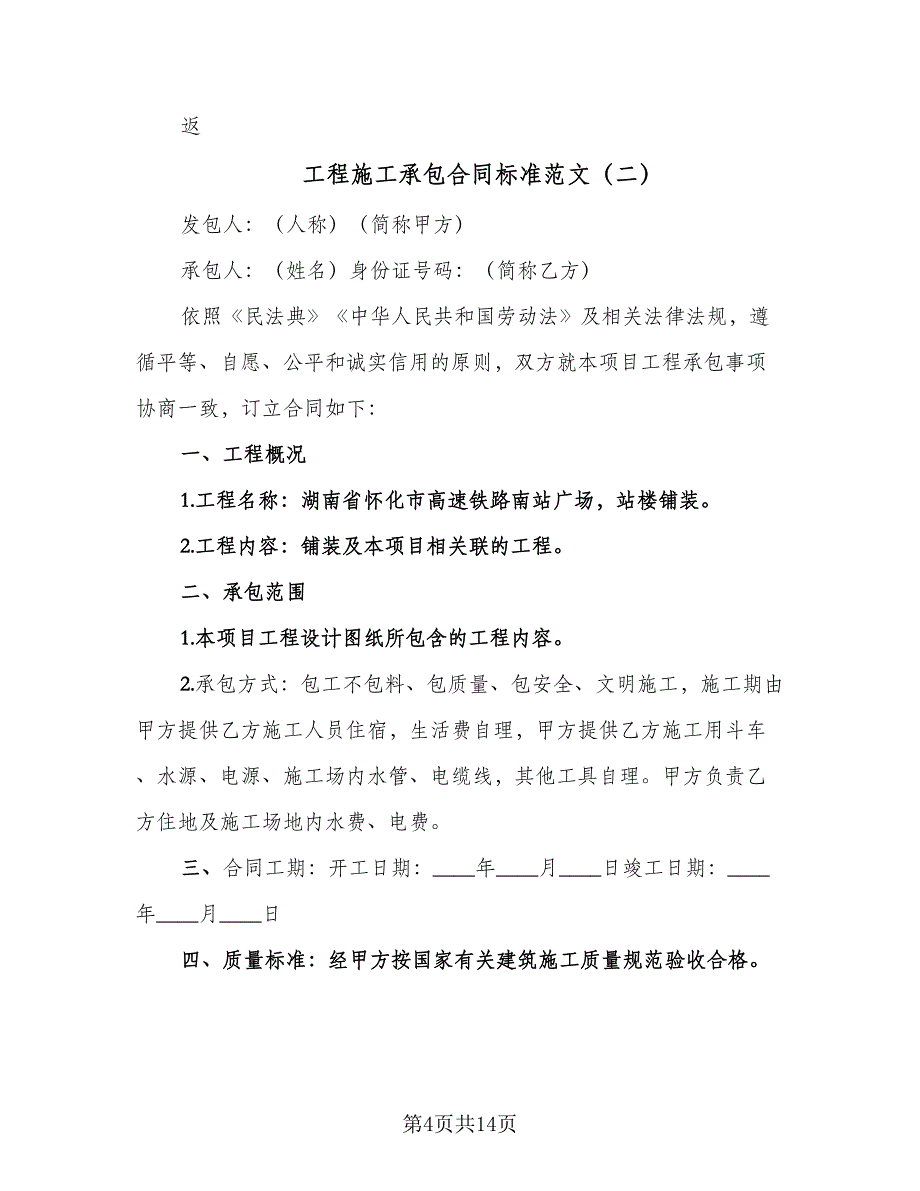 返
工程施工承包合同标准范文（二）
发包人：（人称）（简称甲方）
承包人：（姓名）身份证号码：（简称乙方）
依照《民法典》《中华人民共和国劳动法》及相关法律法规，遵
循平等、自愿、公平和诚实信用的原则，双方就本项目工程承包事项
协商一致，订立合同如下：
一、工程概况
1.工程名称：湖南省怀化市高速铁路南站广场，站楼铺装。
2.工程内容：铺装及本项目相关联的工程。
二、承包范围
1.本项目工程设计图纸所包含的工程内容。
2.承包方式：包工不包料、包质量、包安全、文明施工，施工期由
甲方提供乙方施工人员住宿，生活费自理，甲方提供乙方施工用斗车
、水源、电源、施工场内水管、电缆线，其他工具自理。甲方负责乙
方住地及施工场地内水费、电费。
三、合同工期：开工日期：____年____月____日竣工日期：____
年____月____日
四、质量标准：经甲方按国家有关建筑施工质量规范验收合格。
第4页共14页